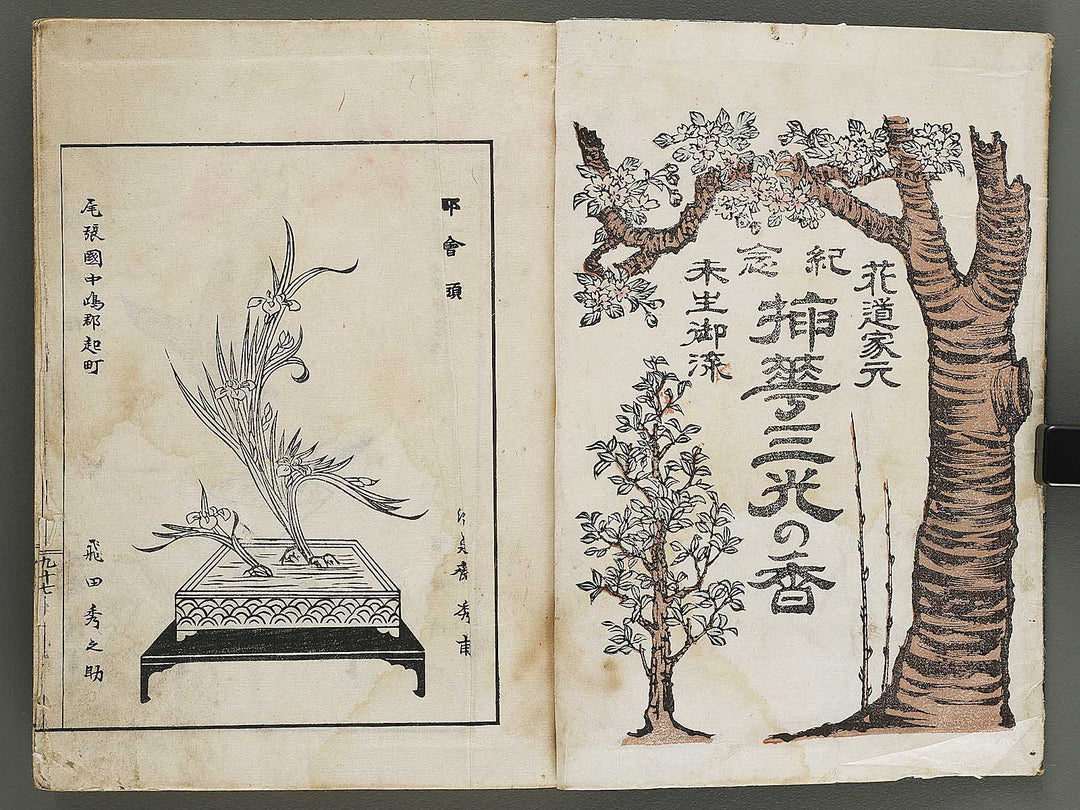 花道家元
紀念
挿華三光の香
未生御流
會頭
秀甫
尾張國中嶋郡起町
飛田秀之助
九十七